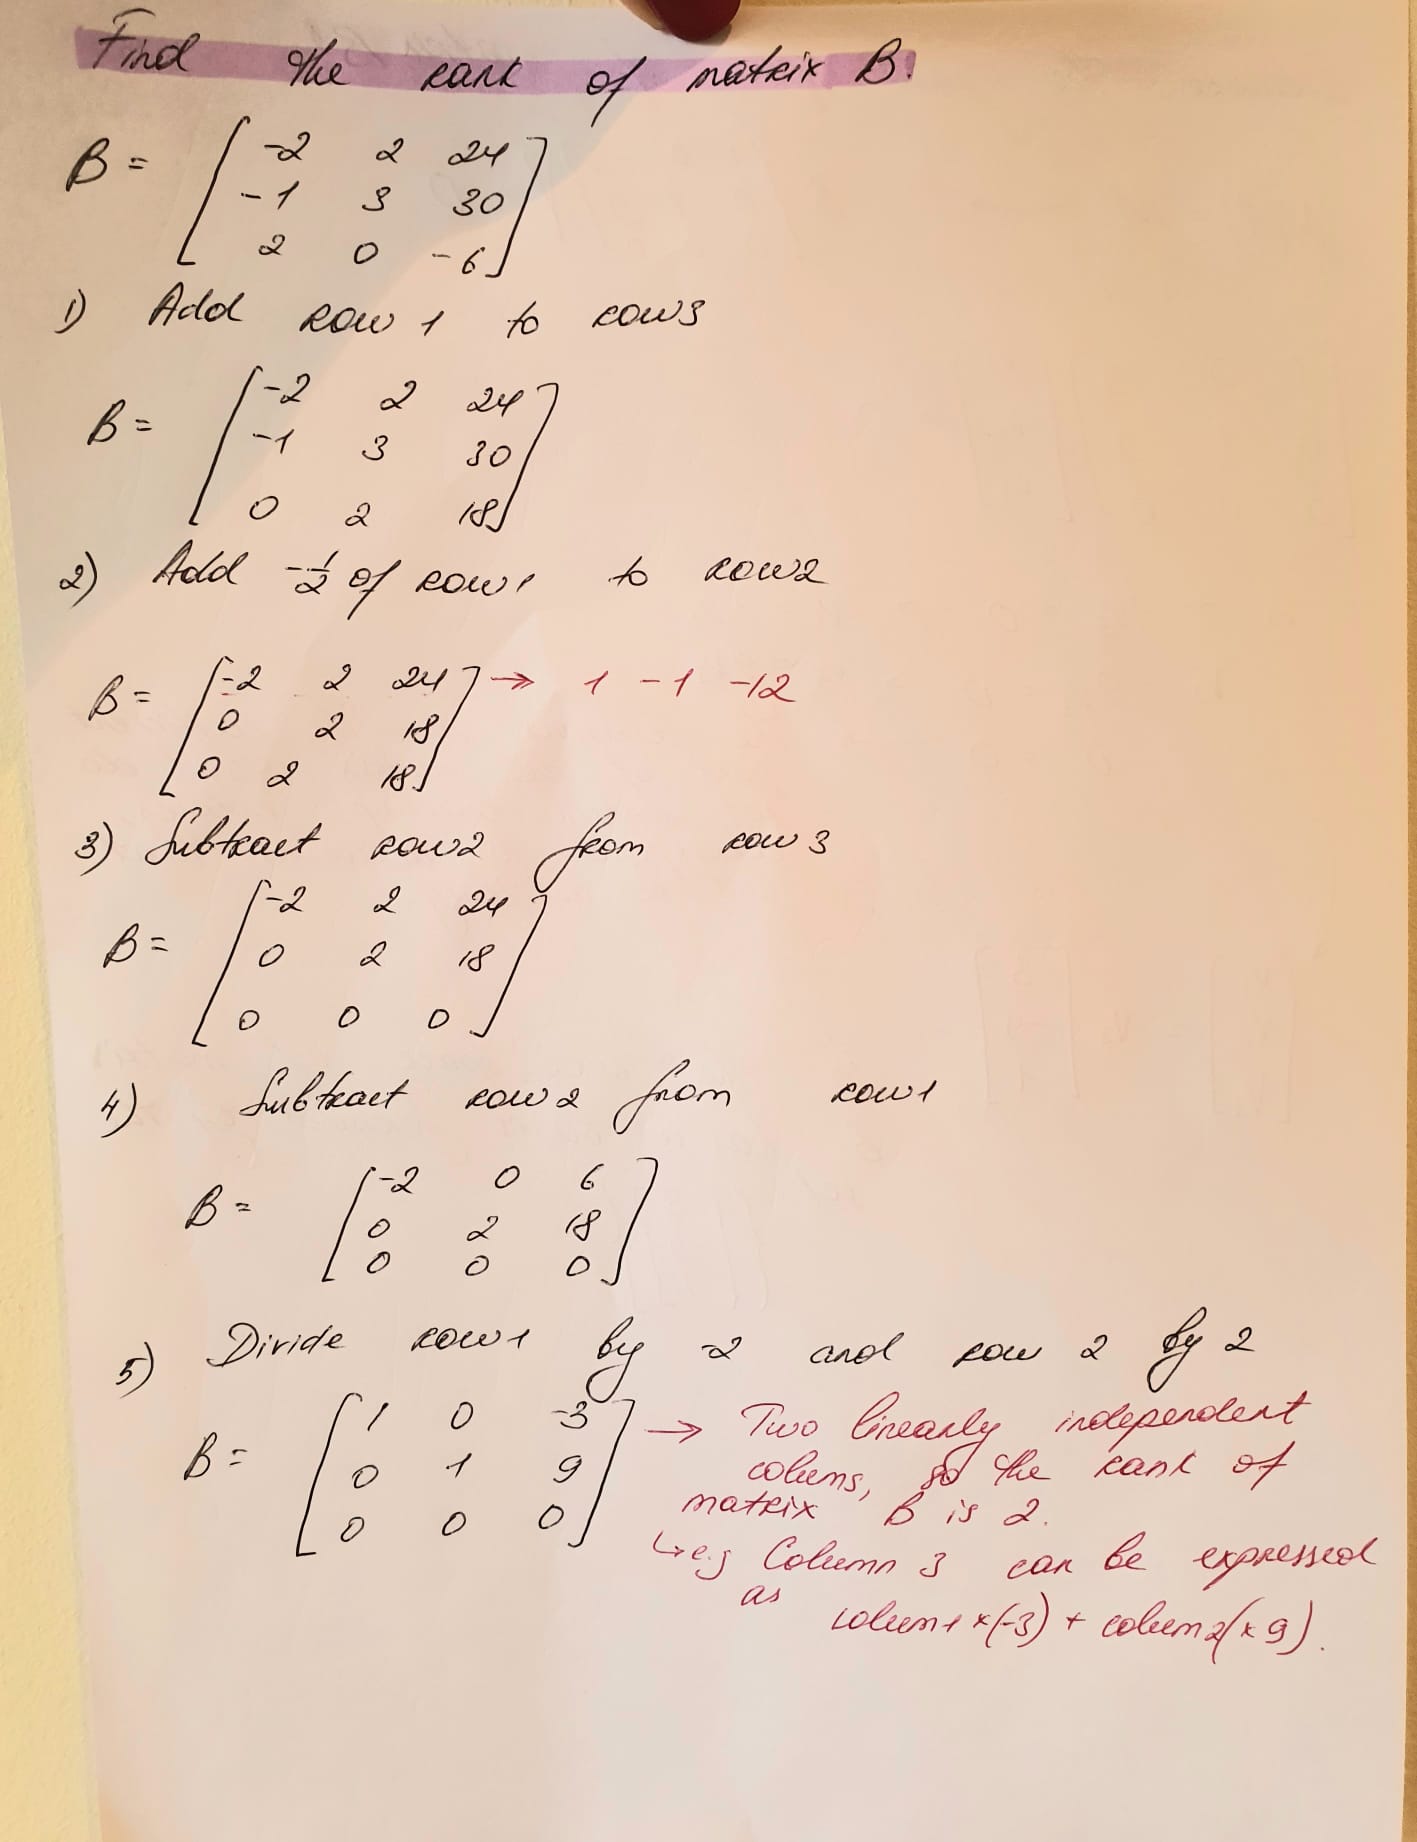 Find the rank of matrix B.
B = [ -2 2 24
-1 3 30
2 0 -6 ]
1) Add row 1 to row 3
B = [ -2 2 24
-1 3 30
0 2 18 ]
2) Add -1/2 of row 1 to row 2
B = [ -2 2 24 ] → 1 -1 -12
0 2 18
0 2 18 ]
3) Subtract row 2 from row 3
B = [ -2 2 24
0 2 18
0 0 0 ]
4) Subtract row 2 from row 1
B = [ -2 0 6
0 2 18
0 0 0 ]
5) Divide row 1 by -2 and row 2 by 2
B = [ 1 0 -3 ] → Two linearly independent
0 1 9 colums, so the rank of
0 0 0 ] matrix B is 2.
↳ e.g Column 3 can be expressed
as
colum 1 ×(-3) + colum 2(× 9).